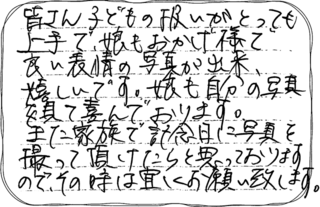 皆さん子どもの扱いがとっても
上手で、娘もおかげ様で
良い表情の写真が出来、
嬉しいです。娘も自分の写真
を見て喜んでおります。
また家族で記念日に写真を
撮って頂けたらと思っております
ので、その時は宜しくお願い致します。